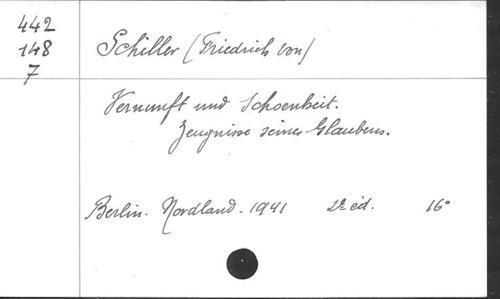 442
148
7
Schiller (Friedrich von)
Vernunft und Schoenheit.
Zeugnisse seines Glaubens.
Berlin. Nordland. 1941 2e éd. 16°